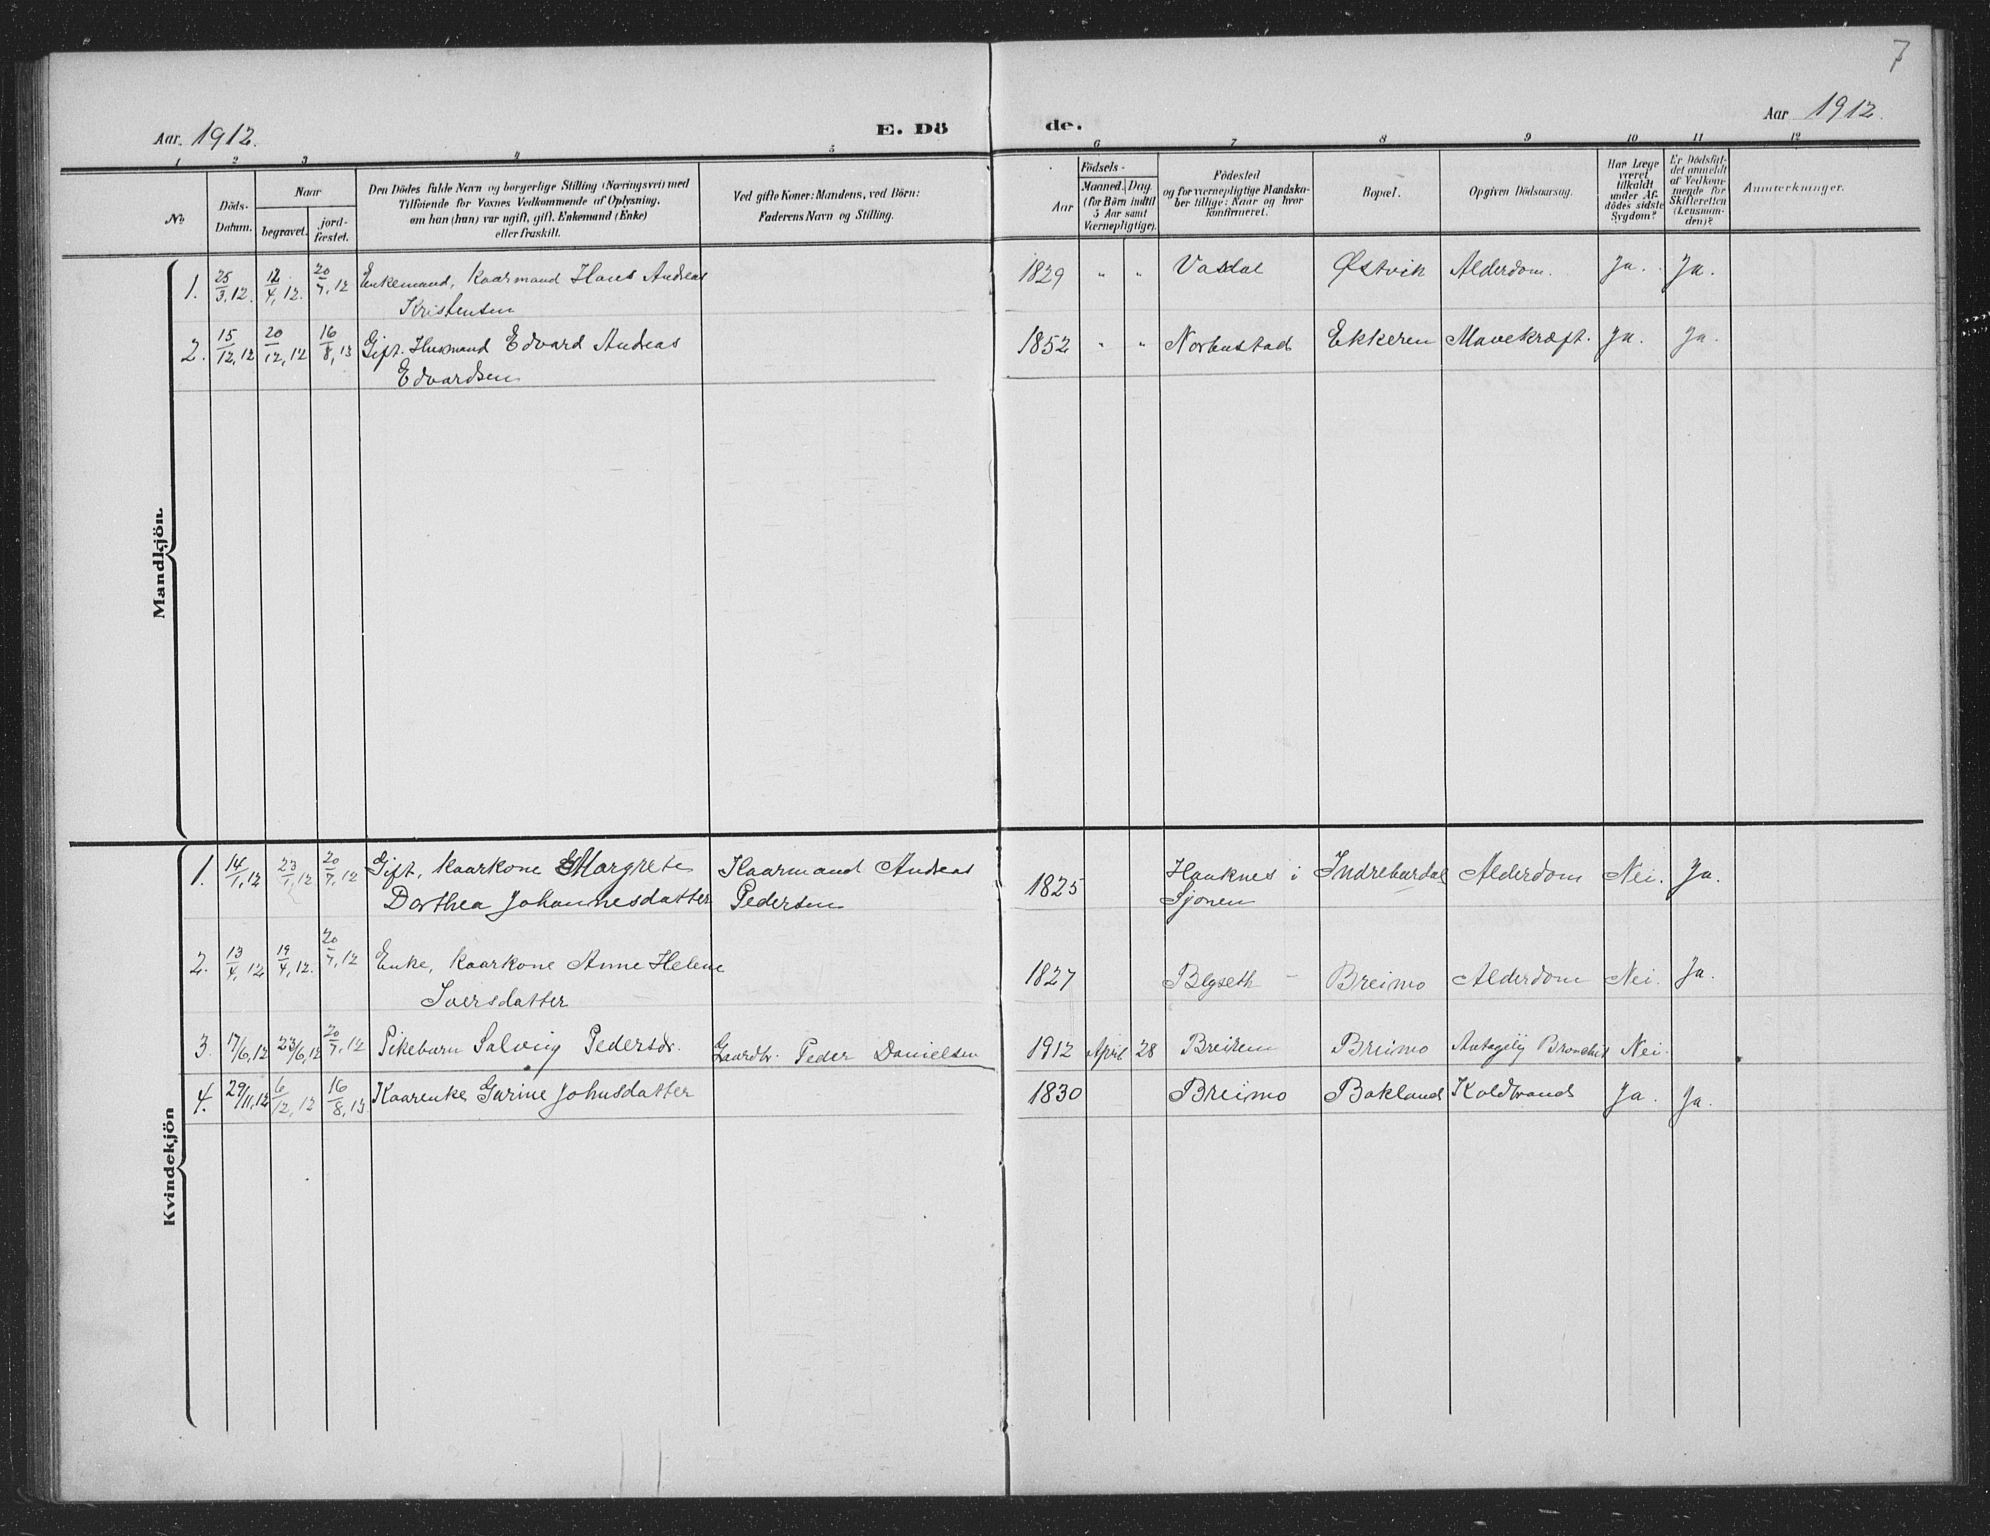 7
Aar 1912.
E. Dö
de.
Aar 1912.
1 2 3 4 5 6 7 8 9 10 11 12
No
Döds-
Datum.
Naar
begravet.
jord-
fæstet.
Den Dödes fulde Navn og borgerlige Stilling (Næringsvei) med
Tilföiende for Voxnes Vedkommende af Oplysning,
om han (hun) var ugift, gift, Enkemand (Enke)
eller fraskilt.
Ved gifte Koner: Mandens, ved Börn:
Faderens Navn og Stilling.
Födsels-
Aar
Maaned. Dag.
(for Börn indtil
5 Aar samt
Værnepligtige).
Födested
og for værnepligtige Mandska-
ber tillige: Naar og hvor
konfirmeret.
Bopæl.
Opgiven Dödsaarsag.
Har Læge
været
tilkaldt
under Af-
dödes sidste
Sygdom?
Er Dödsfal-
det anmeldt
af Vedkom-
mende for
Skifteretten
(Lensman-
den)?
Anmærkninger.
Mandkjön.
1. 25/3, 12. 12/4, 12. 20/7, 12 Enkemand, Kaarmand Hans Andreas 1829 " " Vasdal Østvik Alderdom. Ja. Ja.
Kristensen
2. 15/12, 12 20/12, 12 16/8, 13 Gift. Husmand Edvard Andreas 1852 " " Ekkeren Mavekræft. Ja. Ja.
Edvardsen
Kvindekjön
1. 14/1, 12 23/1, 12 20/7, 12 Gift, Kaarkone Margrete Kaarmand Andreas 1825 Haaknes i Alderdom Nei. Ja.
Dorthea Johannesdatter Pedersen Sjonen
2. 13/4, 12 19/4, 12. 20/7, 12 Enke, Kaarkone Anne Helene 1827 Breimo Alderdom Nei. Ja.
Iversdatter
3. 17/6, 12 23/6, 12 20/7, 12 Pikebarn Solveig Pedersdr. Gaardbr. Peder Danielsen 1912 April 28 Breimo Nei.
4. 29/11, 12 6/12, 12 16/8, 13 Kaarenke Gurine Johnsdatter 1830 Breimo Bakland Koldbrand Ja. Ja.